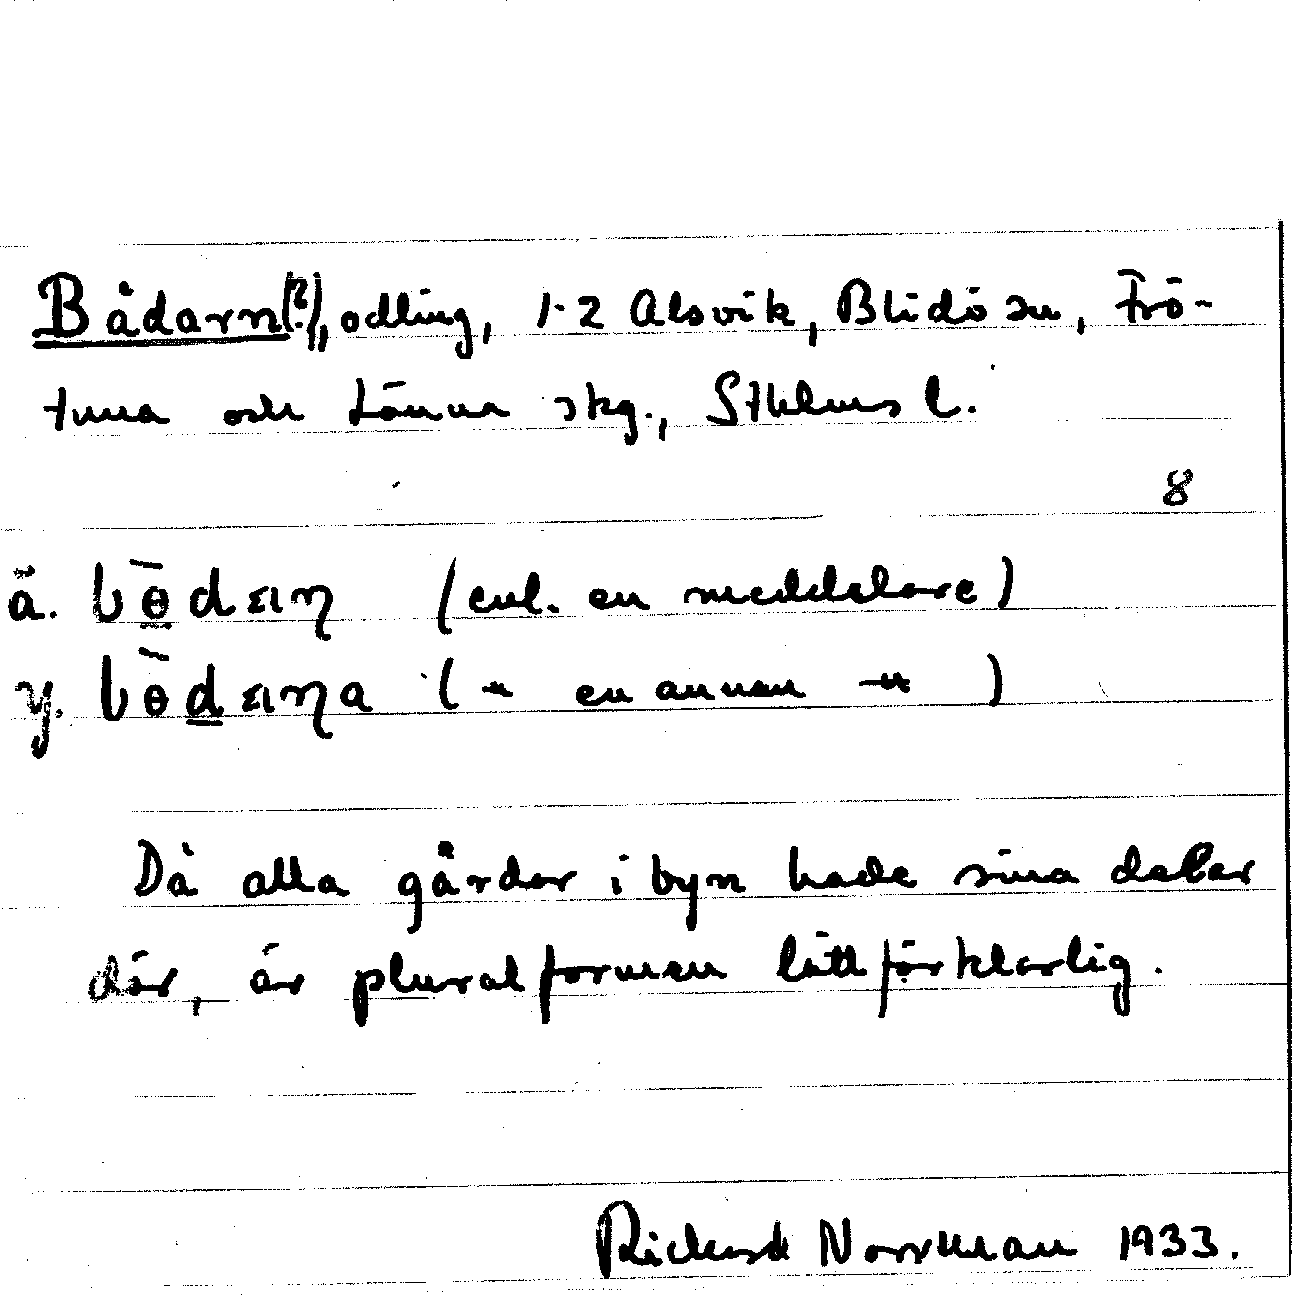 Bådarn(?), odling, 1-2 Alsvik, Blidö sn, Frö-
tuna och Länna skg., Sthlms l.
8
ä. bɵ̄dαıɳ (enl. en meddelare)
y. bɵ̄dαıɳa (-"- en annan -"-)
Då alla gårdar i byn hade sina delar
där, är pluralformen lättförklarlig.
Rickard Norrman 1933.